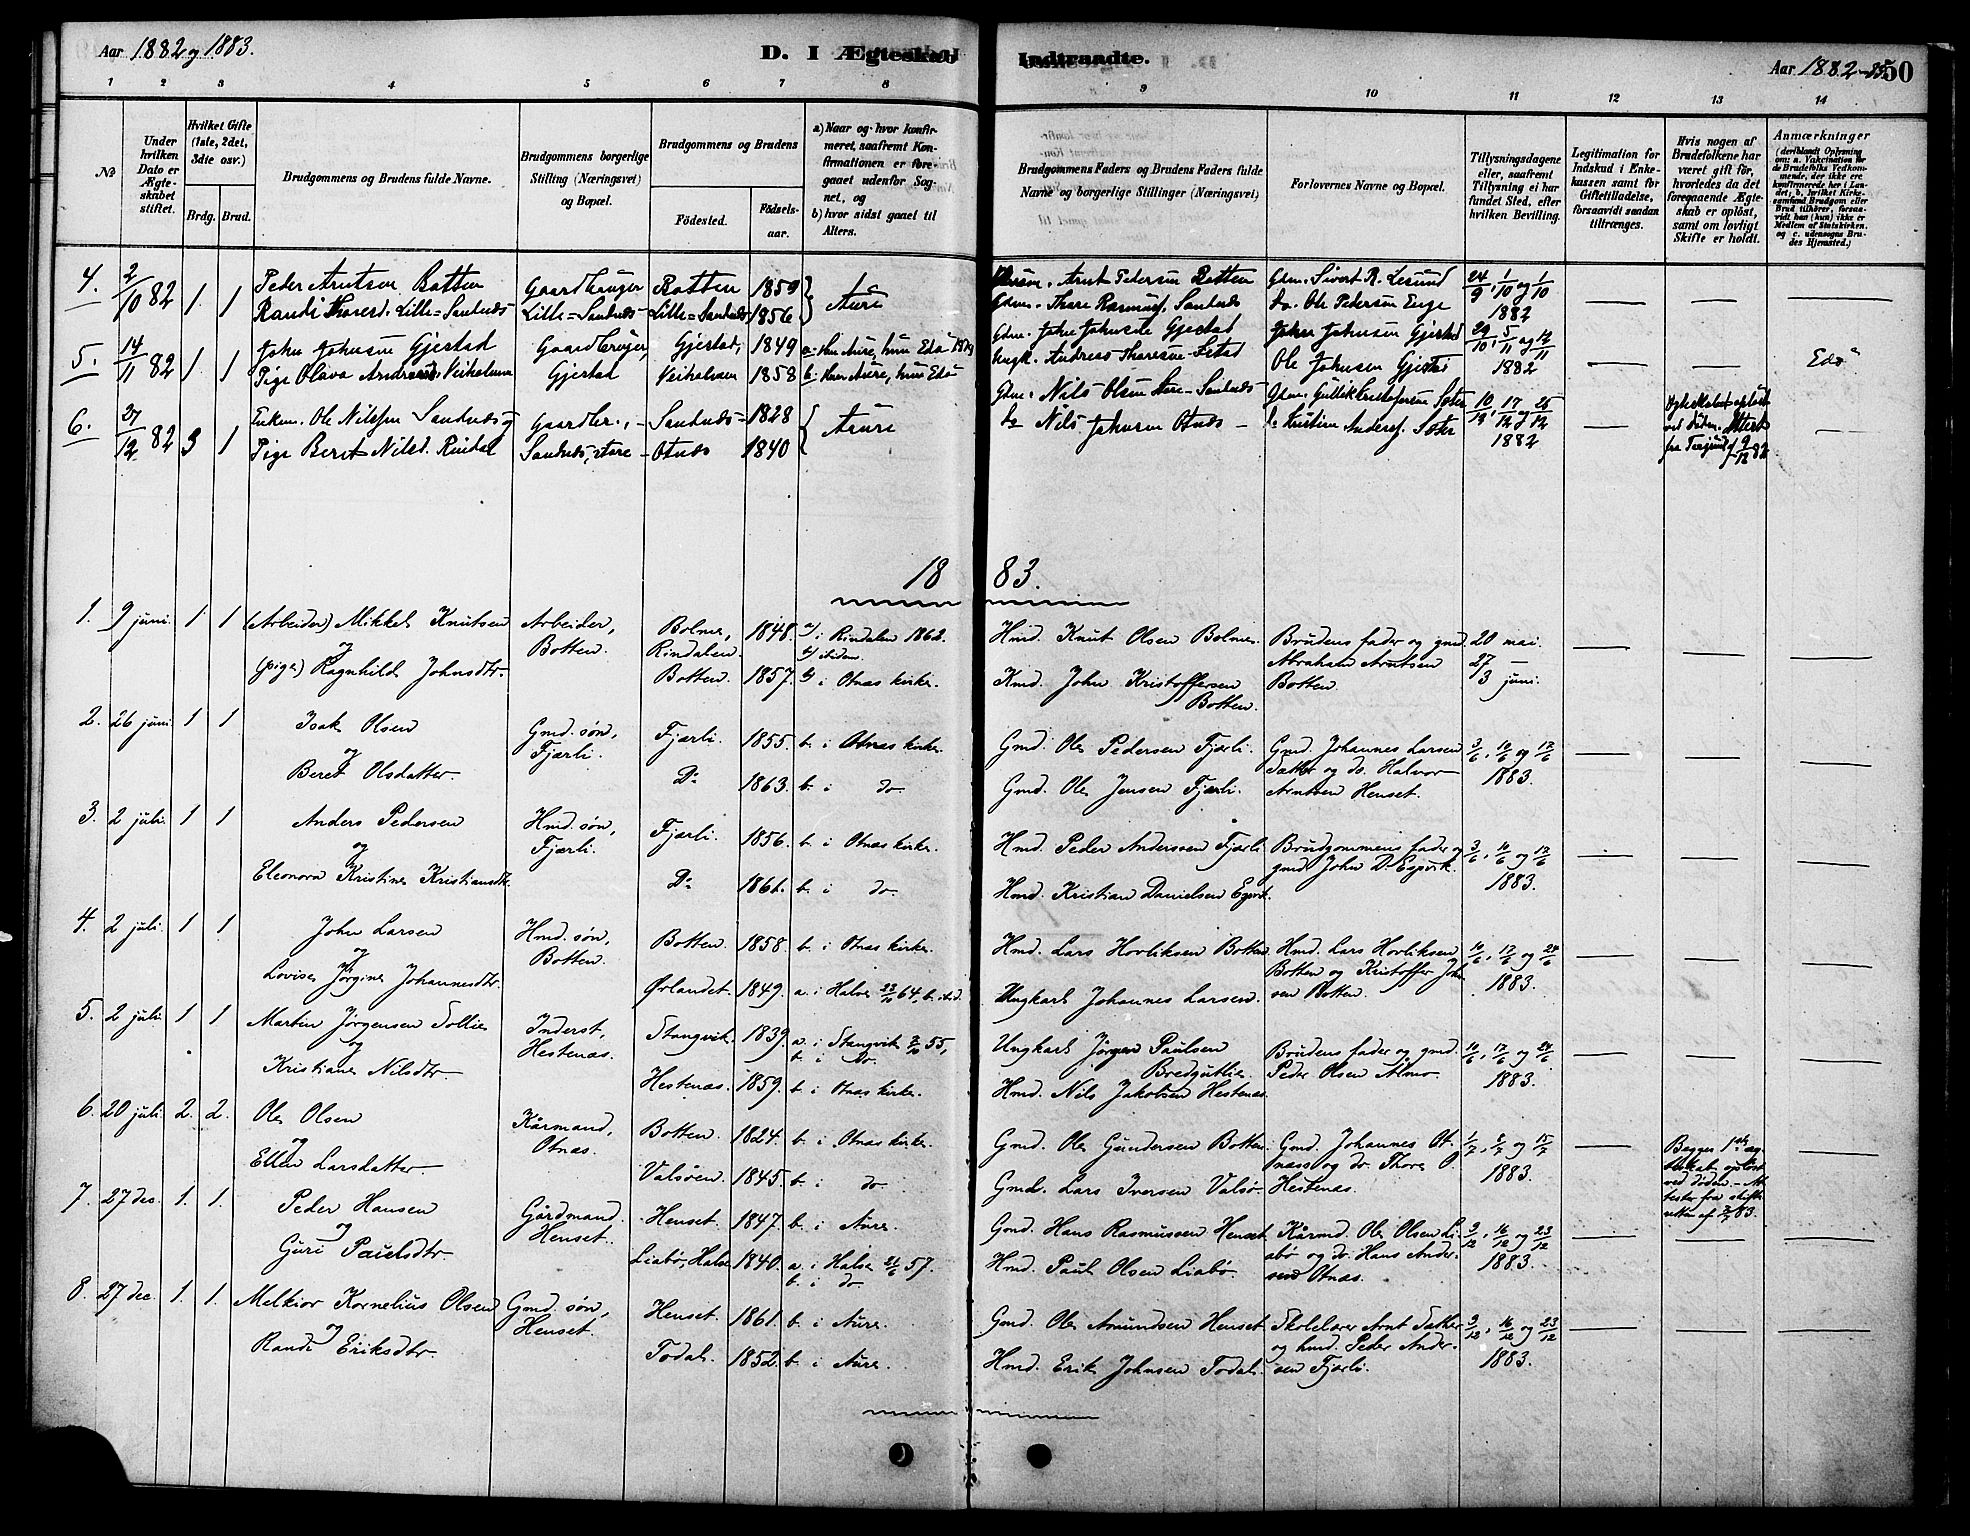 Aar 1882 og 1883.
D. I Ægteskab Indtraadte.
Aar 1882-83
50
1 2 3 4 5 6 7 8 9 10 11 12 13 14
No
Under hvilken Dato er Ægteskabet stiftet.
Hvilket Gifte (1ste, 2det, 3die osv.)
Brdg. Brud.
Brudgommens og Brudens fulde Navne.
Brudgommens borgerlige Stilling (Næringsvei) og Bopæl.
Brudgommens og Brudens
Födested. Födselsaar.
a) Naar og hvor konfirmeret, saafremt Konfirmationen er foregaaet udenfor Sognet, og
b) hvor sidst gaaet til Alters.
Brudgommens Faders og Brudens Faders fulde Navne og borgerlige Stillinger (Næringsvei)
Forlovernes Navne og Bopæl.
Tillysningsdagene eller, saafremt Tillysning ei har fundet Sted, efter hvilken Bevilling.
Legitimation for Indskud i Enkekassen samt for Giftetilladelse, forsaavidt saadan tiltrænges.
Hvis nogen af Brudefolkene har været gift för, hvorledes da det foregaaende Ægteskab er oplöst, samt om lovligt Skifte er holdt.
Anmærkninger (deriblandt Oplysning om: a. Vakcination for de Brudefolks Vedkommende, der ikke ere konfirmerede her i Landet; b. hvilket Kirkesamfund Brudgom eller Brud tilhörer, forsaavidt han (hun) ikke er Medlem af Statskirken, og c. udensogns Brudes Hjemsted.)
4. 2/10 82 1. 1 Peder Arntsen Botten Gaardbruger Botten 1859 Aure Arnt Pedersen Botten Gdm. Sivert R. Lesund 24/9, 1/10 og 1/10
Randi Thoresd. Lille-Sandnes Lille-Sandnes Lille-Sandnes 1856 Gdm. Thore Rasmus. Sandnes do. Ole Pedersen Enge 1882
5. 14/11 82 1 1 John Johnsen Gjestad Gaardbruger, Gjestad, 1849 a. Han Aure, hun Edø Gdm. John Johnsen Gjestad John Johnsen Gjestad 29/10, 5/11 og 12/11
Pige Olava Andreasd. Veiholmen Gjestad Veiholmen 1858 b. Han Aure, hun Edø Ungk. Andreas Thoresen Ole Johnsen Gjestad 1882 Edø
6. 27/12 82 3 1 Enkem. Ole Nilssen Sandnes og Gaardbr., Sandnes 1828 Aure Gdm. Nils Olsen Store-Sandnes Gdm. Gullik Kristofersen Sæter 10/12, 17/12 og 25/12
Pige Beret Nilsd. Rindal Sandnes, store Otnæs 1840 do Nils Johnsen Otnæs do Kristen Anders. Sæter 1882
1883.
1. 9 juni. 1. 1 (Arbeider) Mikkel Knutsen Arbeider, Bolme, 1848. a) i Rindalen 1862. Hmd. Knut Olsen Bolme. Brudens fader og gmd. 20 mai.
og Botten. Rindalen. b) ibidem. Abraham Arntsen 27 —
(pige) Ragnhild Johnsdtr. Botten. 1857. b) i Otnæs kirke. Kmd. John Kristoffersen Botten. Botten. 3 juni.
2. 26 juni. 1 1 Isak Olsen Gmd. søn, Fjærli. 1855. b. i Otnæs kirke. Gmd. Ole Pedersen Fjærli. Gmd. Johannes Larsen 3/6, 10/6 og 17/6
og Fjærli. Sæther og do. Halvor 1883.
Beret Olsdatter. Do 1863. b. i do. Gmd. Ole Jensen Fjærli. Arntsen Henset.
3. 2 juli. 1 1 Anders Pedersen Hmd. søn, Fjærli. 1856. b. i Otnæs kirke. Hmd. Peder Andersen Fjærli. Brudgommens fader og 3/6, 10/6 og 17/6
og Fjærli. gmd. John D. Espvik. 1883.
Eleonora Kristine Kristiansdtr. Do 1861. b. i do. Hmd. Kristian Danielsen Espvik.
4. 2 juli. 1 1 John Larsen Hmd. søn, Botten. 1858. b. i Otnæs kirke. Hmd. Lars Hovliksen Botten Hmd. Lars Hovliksen 10/6, 17/6 og 24/6
og Botten. Botten og Kristoffer John- 1883.
Lovise Jørgine Johannesdtr. Ørlandet. 1849. a. i Halse 23/10 64. b. ibid. Ungkarl Johannes Larsen. sen Botten.
5. 2 juli. 1 1 Martin Jørgensen Sollie Inderst, Stangvik. 1839. a. i Stangvik 55, Ungkarl Jørgen Paulsen Brudens fader og gmd. 10/6, 17/6 og 24/6
og Hestenæs. b. i Do. Bredgutlie. Peder Olsen Almo. 1883.
Kristiane Nilsdtr. Hestenæs. 1859. b. i Otnæs kirke. Hmd. Nils Jakobsen Hestenæs.
6. 20 juli. 2. 2. Ole Olsen Kårmand, Botten. 1824. b. i Otnæs kirke. Gmd. Ole Gundersen Botten. Gmd. Johannes Ot- 1/7, 8/7 og 15/7 Begges 1ste æg-
og Otnæs. næss og do. Thore O. 1883. teskab opløst
Ellen Larsdatter. Valsøen. 1845. b. i do. Gmd. Lars Iversen Valsø. Hestenæs. ved døden. - At-
tester fra skifte-
retten af 83.
7. 27 dec. 1. 1. Peder Hansen Gårdmand. Henset. 1847. b. i Aure. Gmd. Hans Rasmussen Henset. Kårmd. Ole Olsen Li- 9/12, 16/12 og 23/12
og Henset. abø og do. Hans Ander- 1883.
Guri Paulsdtr. Liabø, Halse 1840. a. i Halse 57. b. i do Hmd. Paul Olsen Liabø. sen Otnæs.
8. 27 dec. 1. 1. Melkior Kornelius Olsen Gmd. søn, Henset. 1861. b. i Aure. Gmd. Ole Amundsen Henset. Skolelærer Arnt Sæther 9/12, 16/12 og 23/12
og Henset. og hmd. Peder Ander- 1883.
Randi Eriksdtr. Todal. 1852. b. i Aure. Hmd. Erik Johnsen Todal. sen Fjærli.